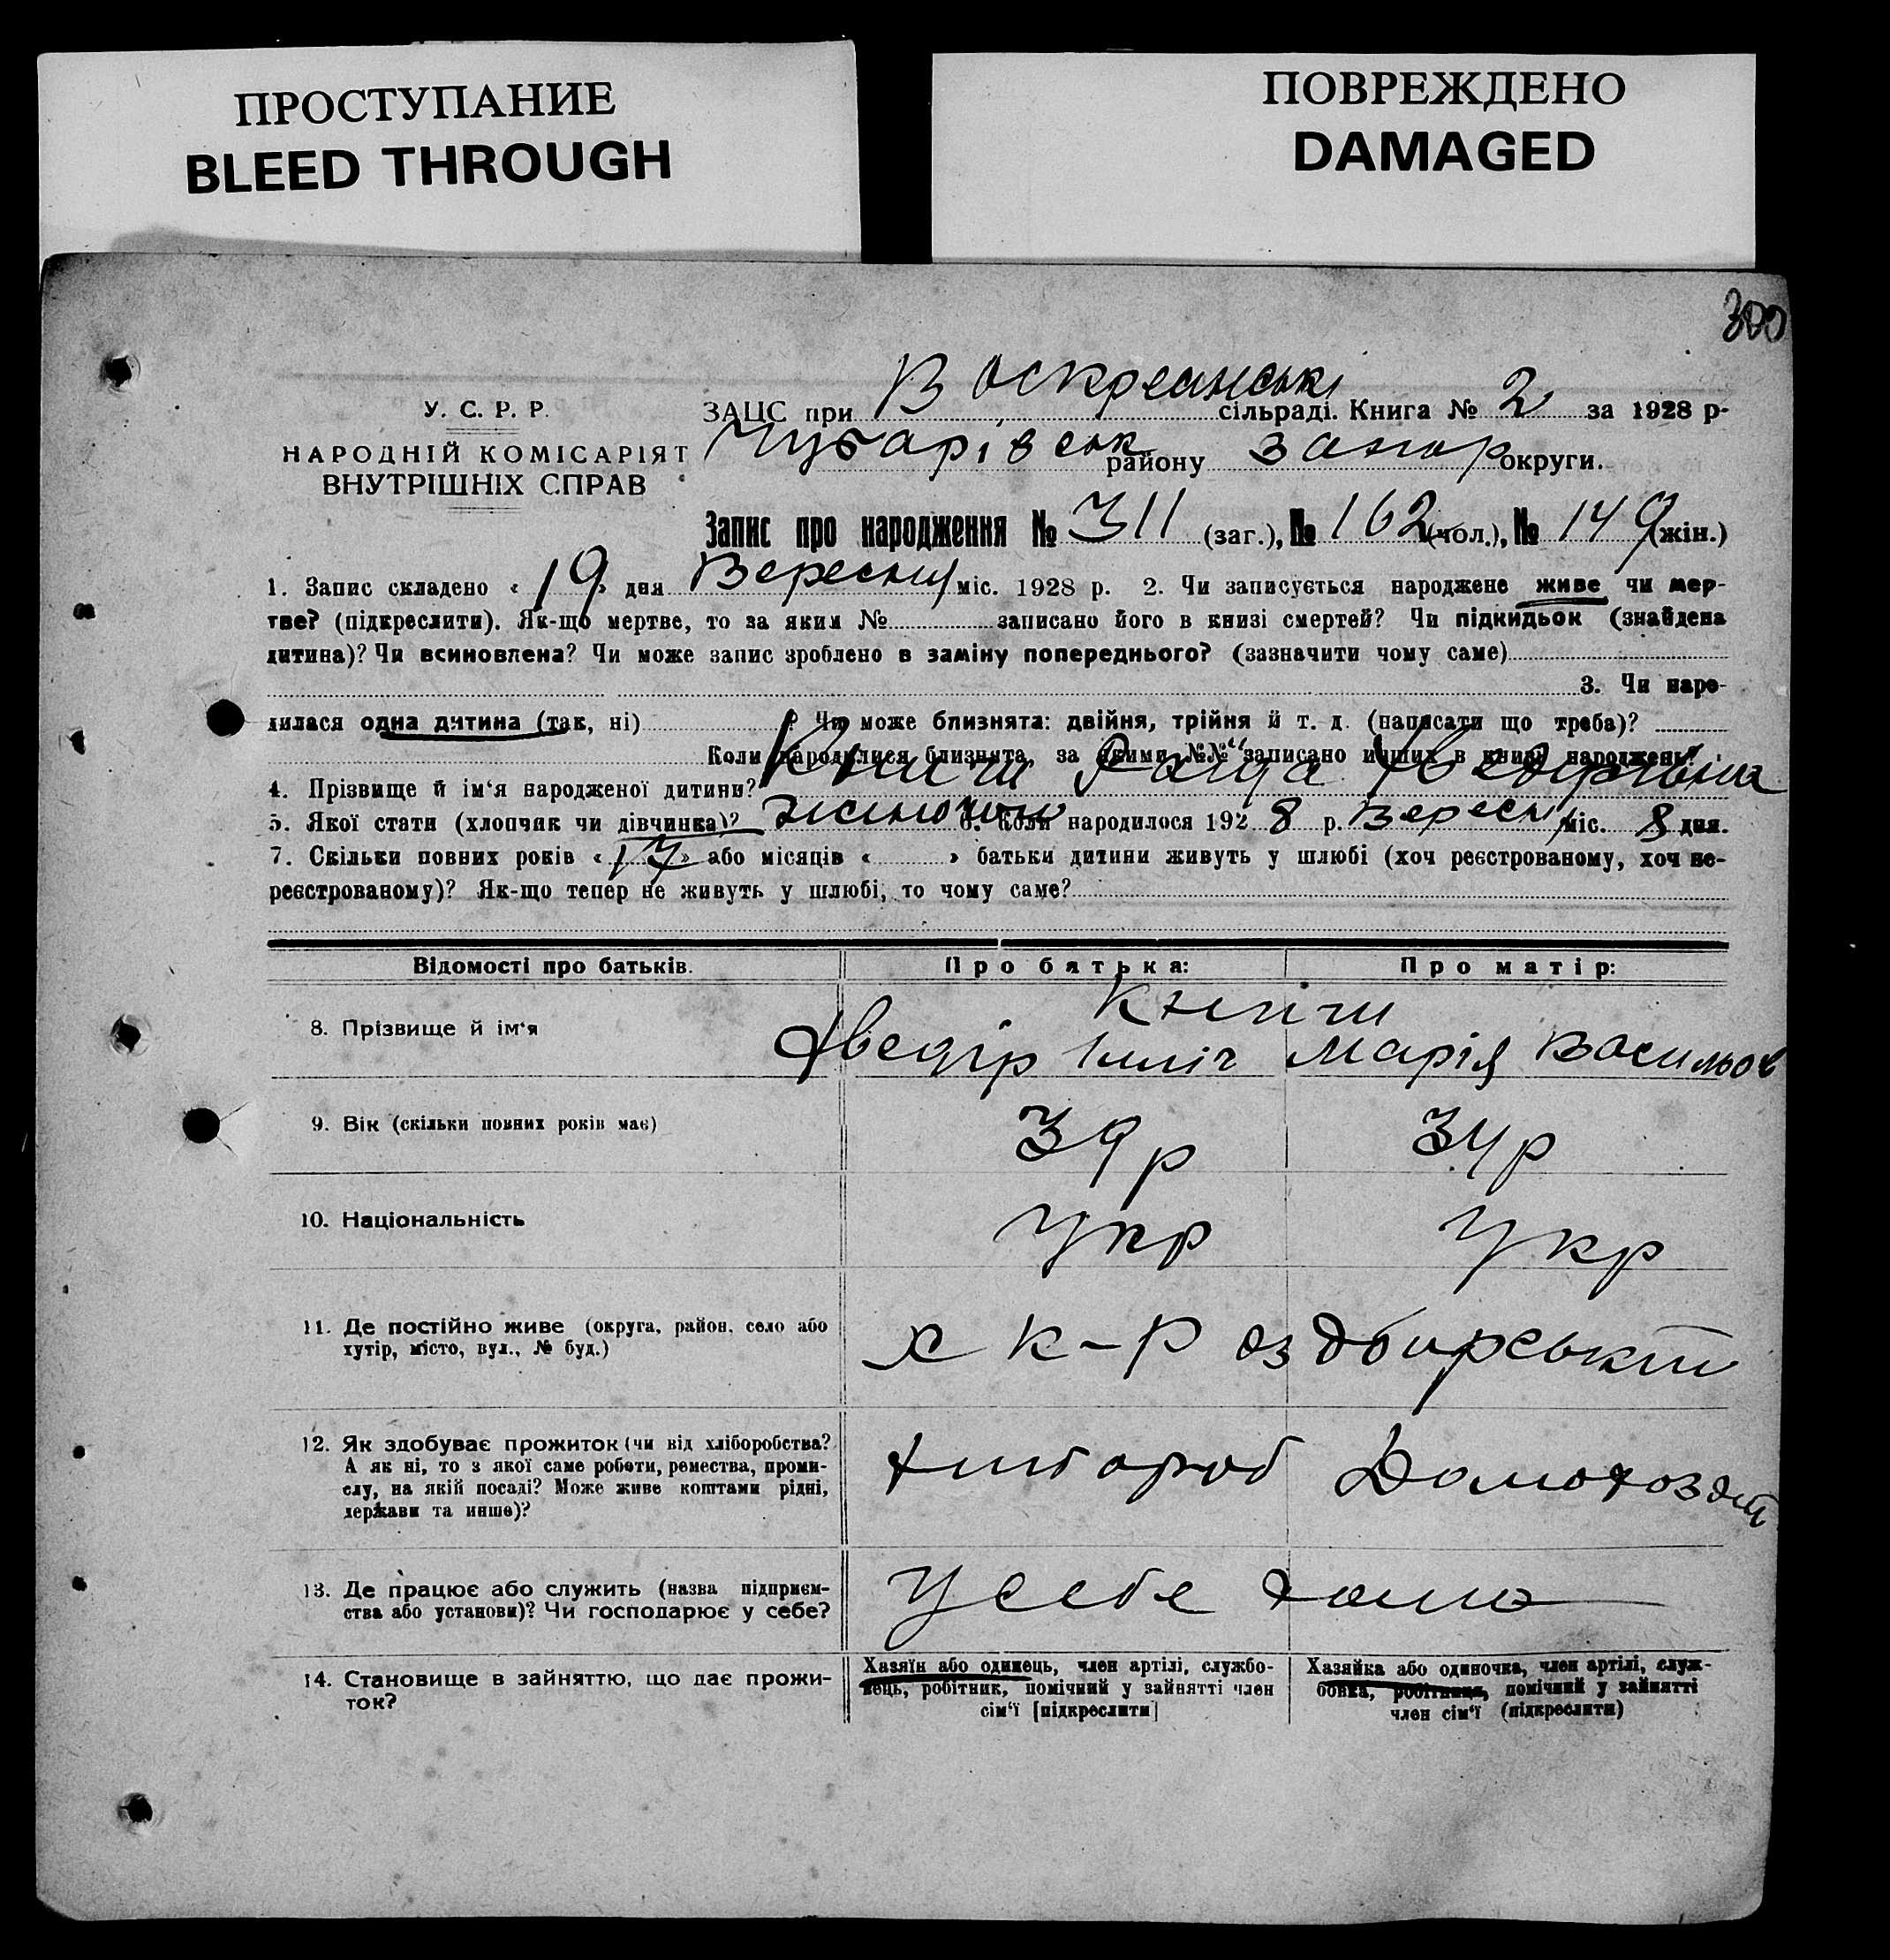 ПРОСТУПАНИЕ
BLEED THROUGH
ПОВРЕЖДЕНО
DAMAGED
300
У. С. Р. Р.
НАРОДНІЙ КОМІСАРІЯТ
ВНУТРІШНІХ СПРАВ
ЗАЦС при Воскресанські сільраді. Книга № 2 за 1928 р-
Чубарівськ району Запор округи.
Запис про народження № 311 (заг.), № 162 (чол.), № 149 (жін.)
1. Запис складено « 19 » дня Вересня міс. 1928 р. 2. Чи записується народжене живе чи мер-
тве? (підкреслити). Як-що мертве, то за яким № записано його в книзі смертей? Чи підкидьок (знайдена
дитина)? Чи всиновлена? Чи може запис зроблено в заміну попереднього? (зазначити чому саме)
3. Чи наро-
дилася одна дитина (так, ні) ? Чи може близнята: двійня, трійня й т. д. (написати що треба)?
Коли народилися близнята, за якими №№ записано инших в книзі народжень?
4. Прізвище й ім‘я народженої дитини? Книш
5. Якої стати (хлопчик чи дівчинка)? жіночою 6. Коли народилося 192 8 р. Вересня міс. 8 дня.
7. Скільки повних років « 17 » або місяців « » батьки дитини живуть у шлюбі (хоч реєстрованому, хоч не-
реєстрованому)? Як-що тепер не живуть у шлюбі, то чому саме?
Відомості про батьків. Про батька: Про матір:
Книш
8. Прізвище й ім‘я Хведір Ілліч Марія Васильов
9. Вік (скільки повних років має) 39 р 34 р
10. Національність Укр Укр
11. Де постійно живе (округа, район, село або
хутір, місто, вул., № буд.)
х к-р
12. Як здобуває прожиток (чи від хліборобства?
А як ні, то з якої саме роботи, ремества, проми-
слу, на якій посаді? Може живе коштами рідні,
держави та инше)?
хлібороб Домохозяй
13. Де працює або служить (назва підприєм-
ства або установи)? Чи господарює у себе?
У себе дома
14. Становище в зайняттю, що дає прожи-
ток?
Хазяїн або одинець, член артілі, службо-
вець, робітник, помічний у зайнятті член
сім‘ї [підкреслити]
Хазяйка або одиночка, член артілі, служ-
бовка, робітниця, помічний у зайнятті
член сім‘ї (підкреслити)